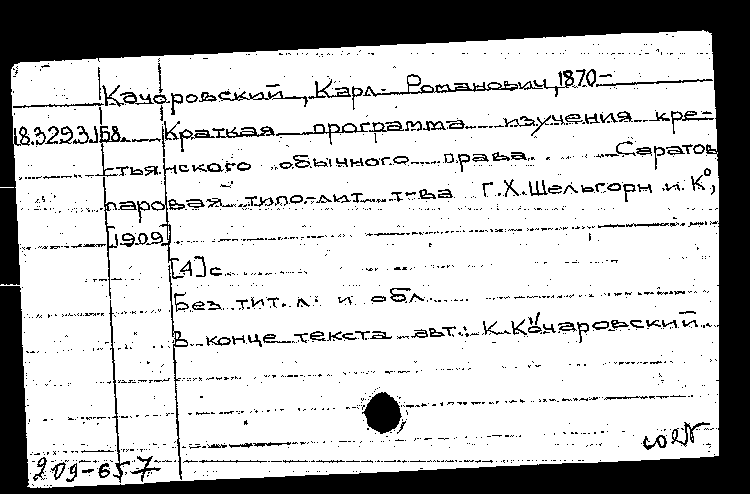 Качаровский, Карл Романович, 1870-
18.329.3.158. Краткая программа изучения кре-
стьянского обычного права. Саратов
паровая типо-лит. т-ва Г.Х.Шельгорн и К°,
[1909]
[4] с
Без тит. л. и обл.
В конце текста авт.: К. Качаровский.
209-657